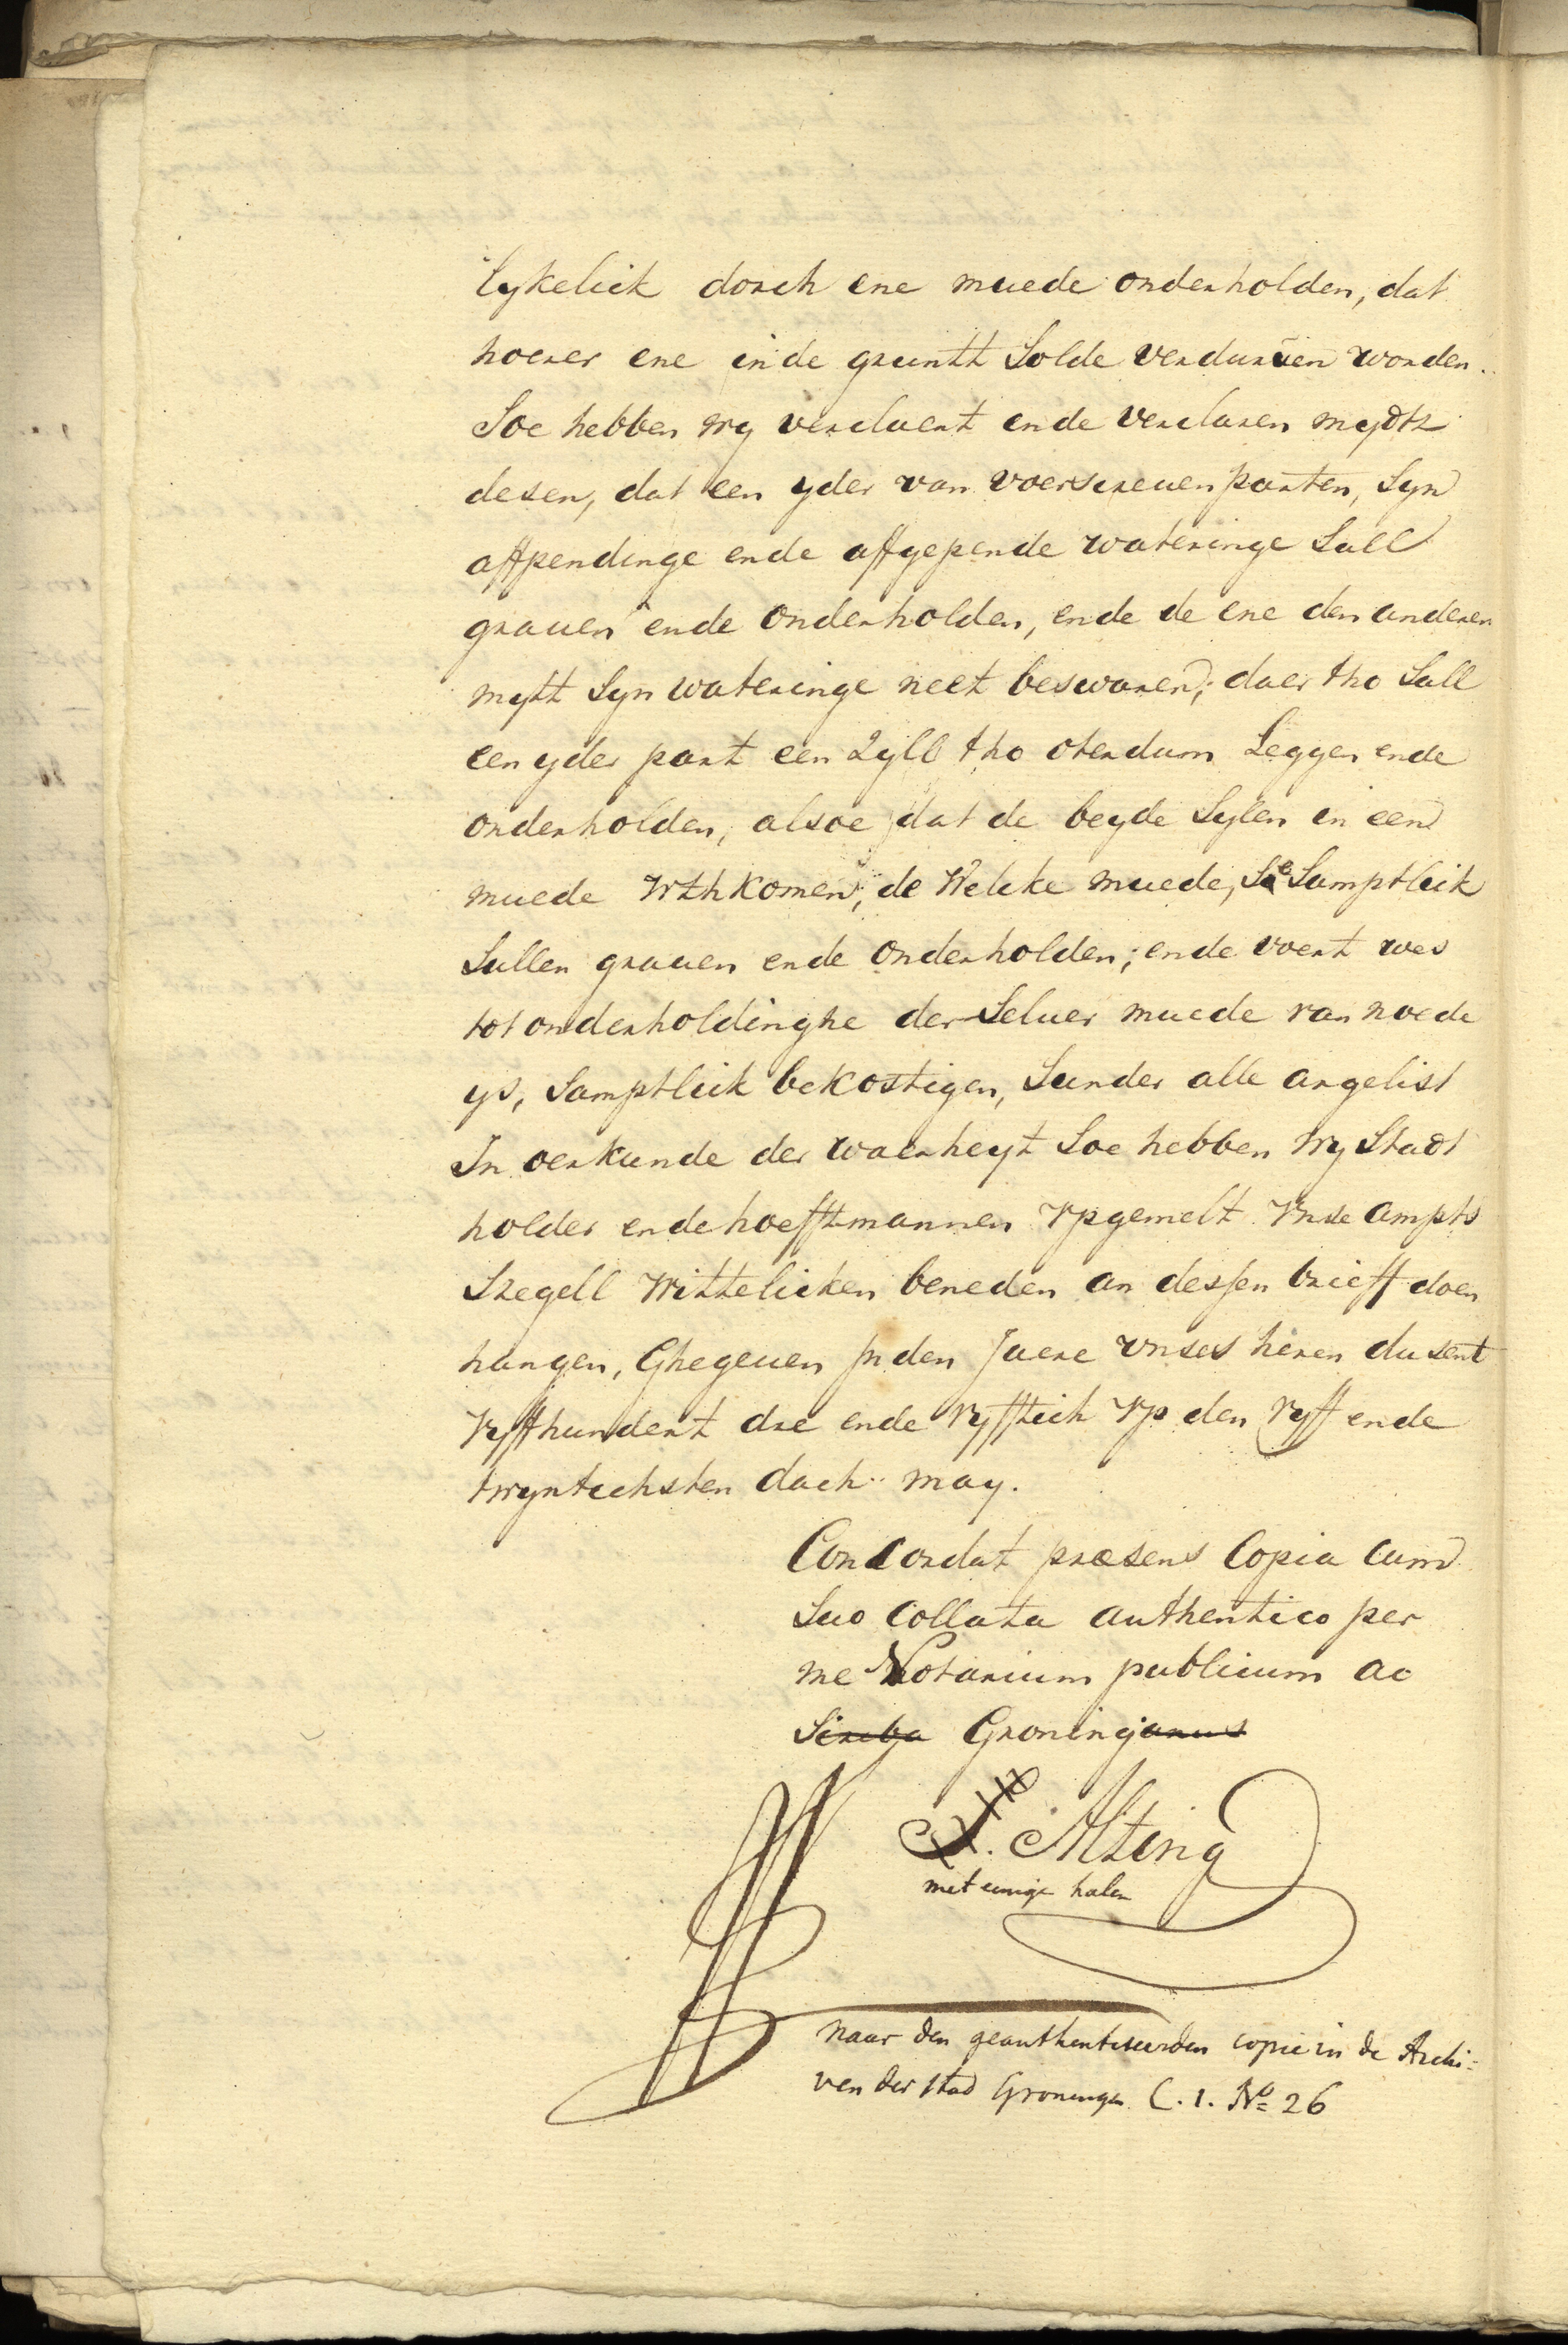 lykelick dorch ene muede onderholden, dat
hoerer ene inde gruntt Solde verduruen worden.
Soe hebben wy verclaert ende verclaren mydtz
desen, dat een yder van voerscreuen parten, Syn
affpendinge ende affgepende wateringe Sall
grauen ende onderholden, ende de ene den anderen
mytt Syn wateringe neet beswaren; daer tho Sall
een yder part een Zyll tho oterdum Leggen ende
onderholden, alsoe dat de beyde Sylen in een
muede Wthkomen; de Welcke muede, Se Samptleik
Sullen grauen ende onderholden; ende voert wes
tot onderholdinghe der Seluer muede van noede
ys, Samptleik bekostigen, Sunder alle argelist
In oerkunde der waerheyt Soe hebben Wy Stadt
holder ende hoefftmannen Vpgemelt Vnse ampts
Szegell Wittelicken beneden an dessen brieff doen
hangen, Ghegeuen Jn den Jaere vnses heren dusent
Vyffhundert dre ende Vyfftich Vp den Vyff ende
twyntichsten dach may.
Concordat præsens Copia cum
Suo Collata authentico per
me Notarium publicum ac
Groninganus
Alting
met eenige halen
naar den geauthentiseerden copie in de Archi=
ven der stad Groningen C. 1. No 26